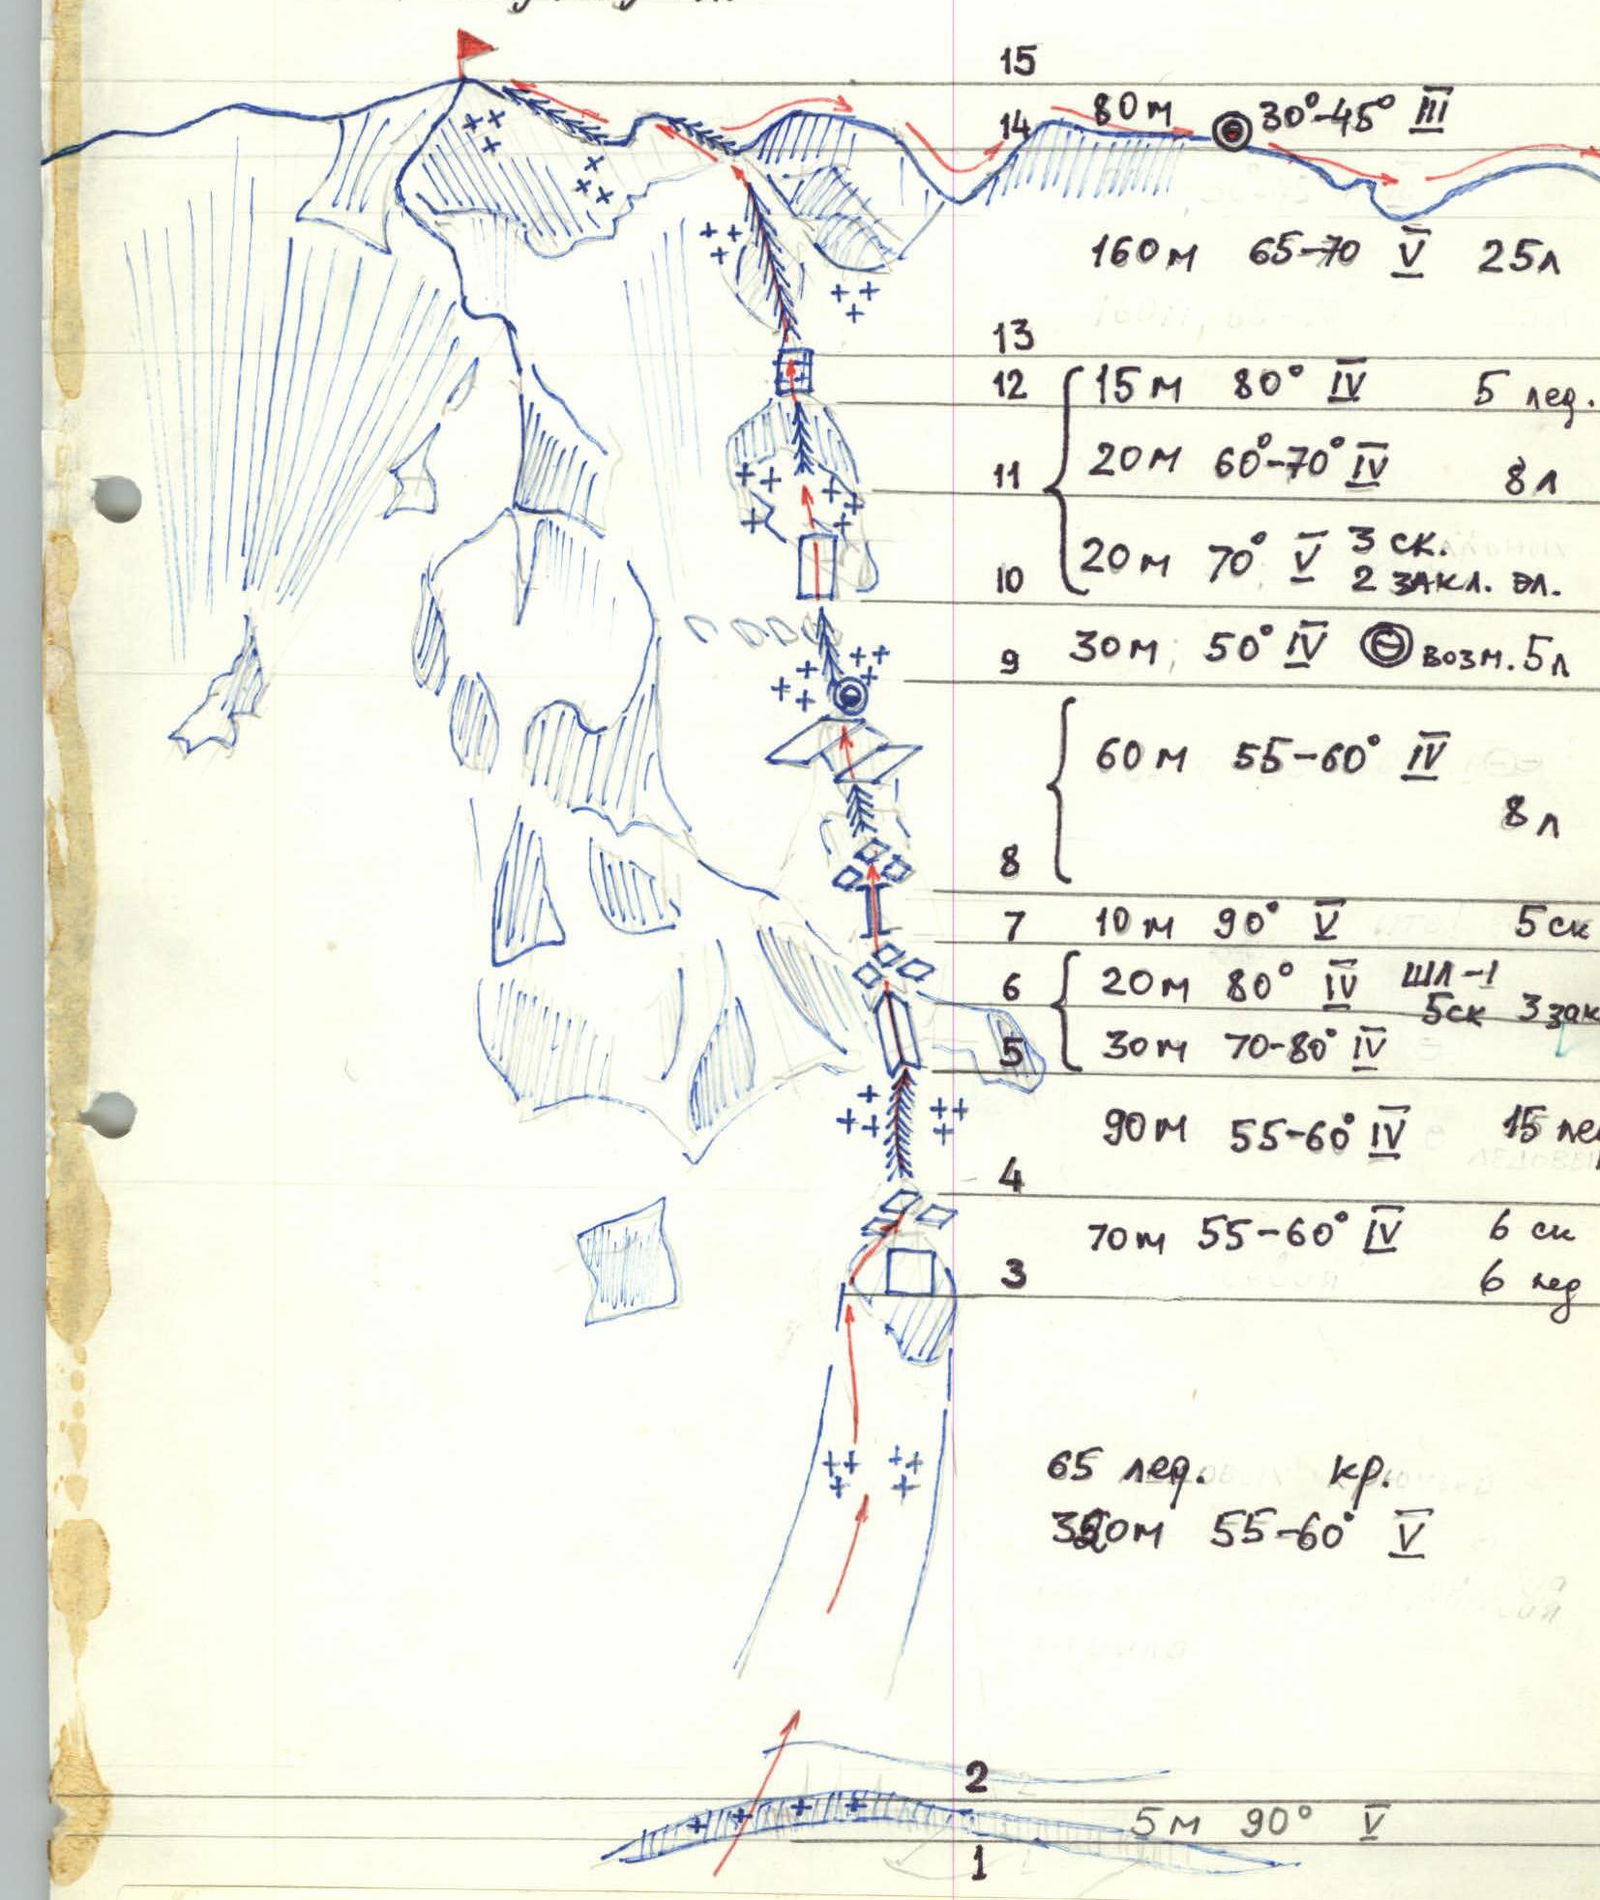 15
14 80м 30°-45° III
160м 65-70 V 25л
13
12 15м 80° IV 5 лед.
11 20м 60°-70° IV 8л
10 20м 70° V 3 ск.
2 закл. эл.
9 30м, 50° IV возм. 5л
60м 55-60° IV
8л
8
7 10м 90° V 5ск
6 20м 80° IV шл-1
5ск 3зак
5 30м 70-80° IV
90м 55-60° IV 15 ле
4
70м 55-60° IV 6 ск
3 6 лед
65 лед. кр.
55-60° V
2
5м 90° V
1